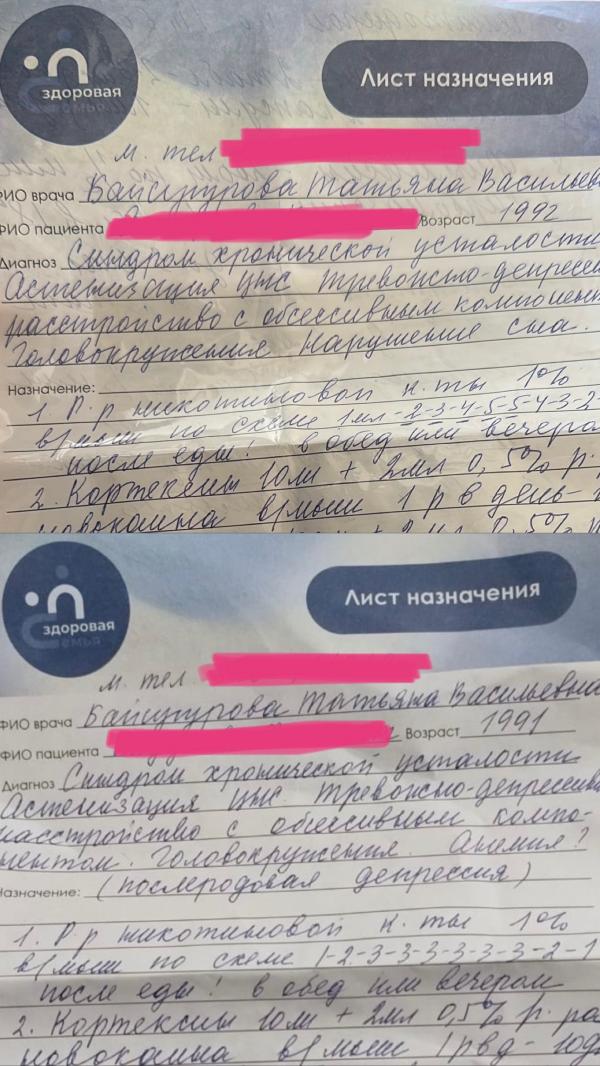 здоровая
семья
Лист назначения
м. тел
ФИО врача Байсугурова Татьяна Васильев
ФИО пациента Возраст 1992
Диагноз Синдром хронической усталости
Астенизация ЦНС Тревожно-депресси
расстройство с обсессивным компонен
Головокружения. Нарушение сна.
Назначение:
1. Р-р никотиновой к-ты 1%
в/мыш по схеме 1мл-2-3-4-5-5-4-3-2-
после еды! в обед или вечеро
2. Кортексин 10мл + 2мл 0,5% р.
новокаина в/мыш 1 р в день-
здоровая
семья
Лист назначения
м. тел
ФИО врача Байсугурова Татьяна Васильевна
ФИО пациента Возраст 1991
Диагноз Синдром хронической усталости
Астенизация ЦНС. Тревожно-депрессивн
расстройство с обсессивным компо-
нентом. Головокружения. Анемия?
Назначение: (послеродовая депрессия)
1. Р-р никотиновой к-ты 1%
в/мыш по схеме 1-2-3-3-3-3-3-3-2-1
после еды! в обед или вечером
2. Кортексин 10мл + 2мл 0,5% р-ра
новокаина в/мыш 1рвд-10д